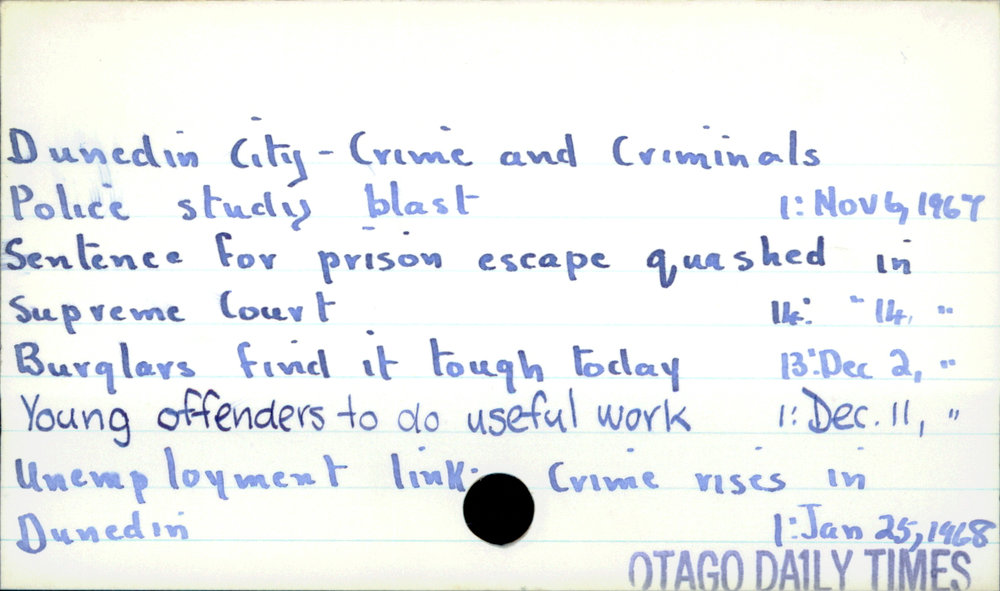 Dunedin City - Crime and Criminals
Police study blast 1: Nov 6, 1967
Sentence for prison escape quashed in
Supreme Court 14: " 14, "
Burglars find it tough today 13: Dec 2, "
Young offenders to do useful work 1: Dec. 11, "
Unemployment link: Crime rises in
Dunedin 1: Jan 25, 1968
OTAGO DAILY TIMES